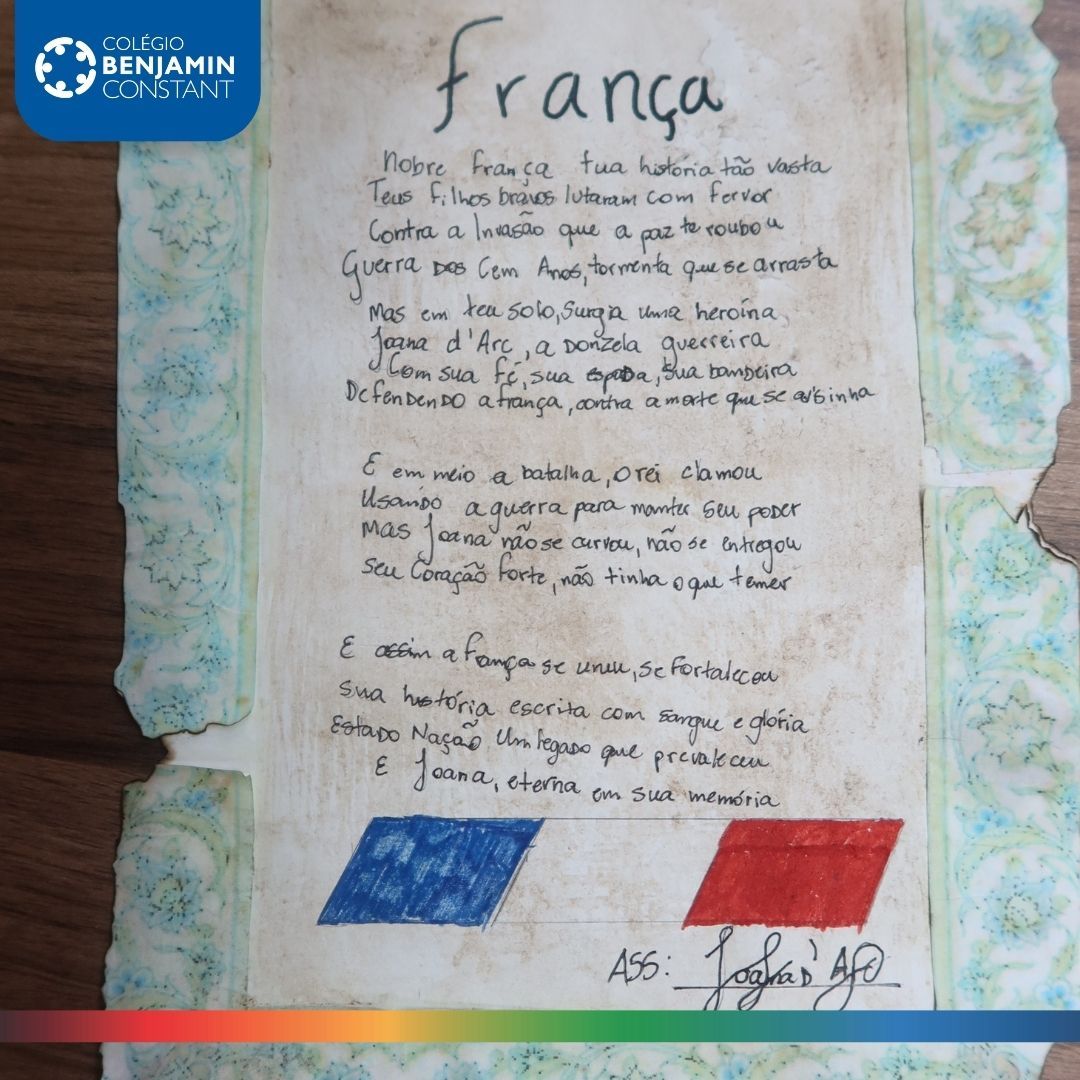 COLÉGIO
BENJAMIN
CONSTANT
França
Nobre França tua história tão vasta
Teus filhos bravos lutaram com fervor
Contra a Invasão que a paz te roubou
Guerra Dos Cem Anos, tormenta que se arrasta
Mas em teu solo, Surgia uma heroína,
Joana d'Arc, a Donzela guerreira
Com sua fé, sua espada, sua bandeira
Defendendo a frança, contra a morte que se avisinha
E em meio a batalha, o rei clamou
Usando a guerra para manter seu poder
Mas Joana não se curvou, não se entregou
Seu Coração forte, não tinha o que temer
E assim a França se uniu, se Fortaleceu
sua história escrita com sangue e glória
Estado Nação Um legado que prevaleceu
E Joana, eterna em sua memória
ASS: